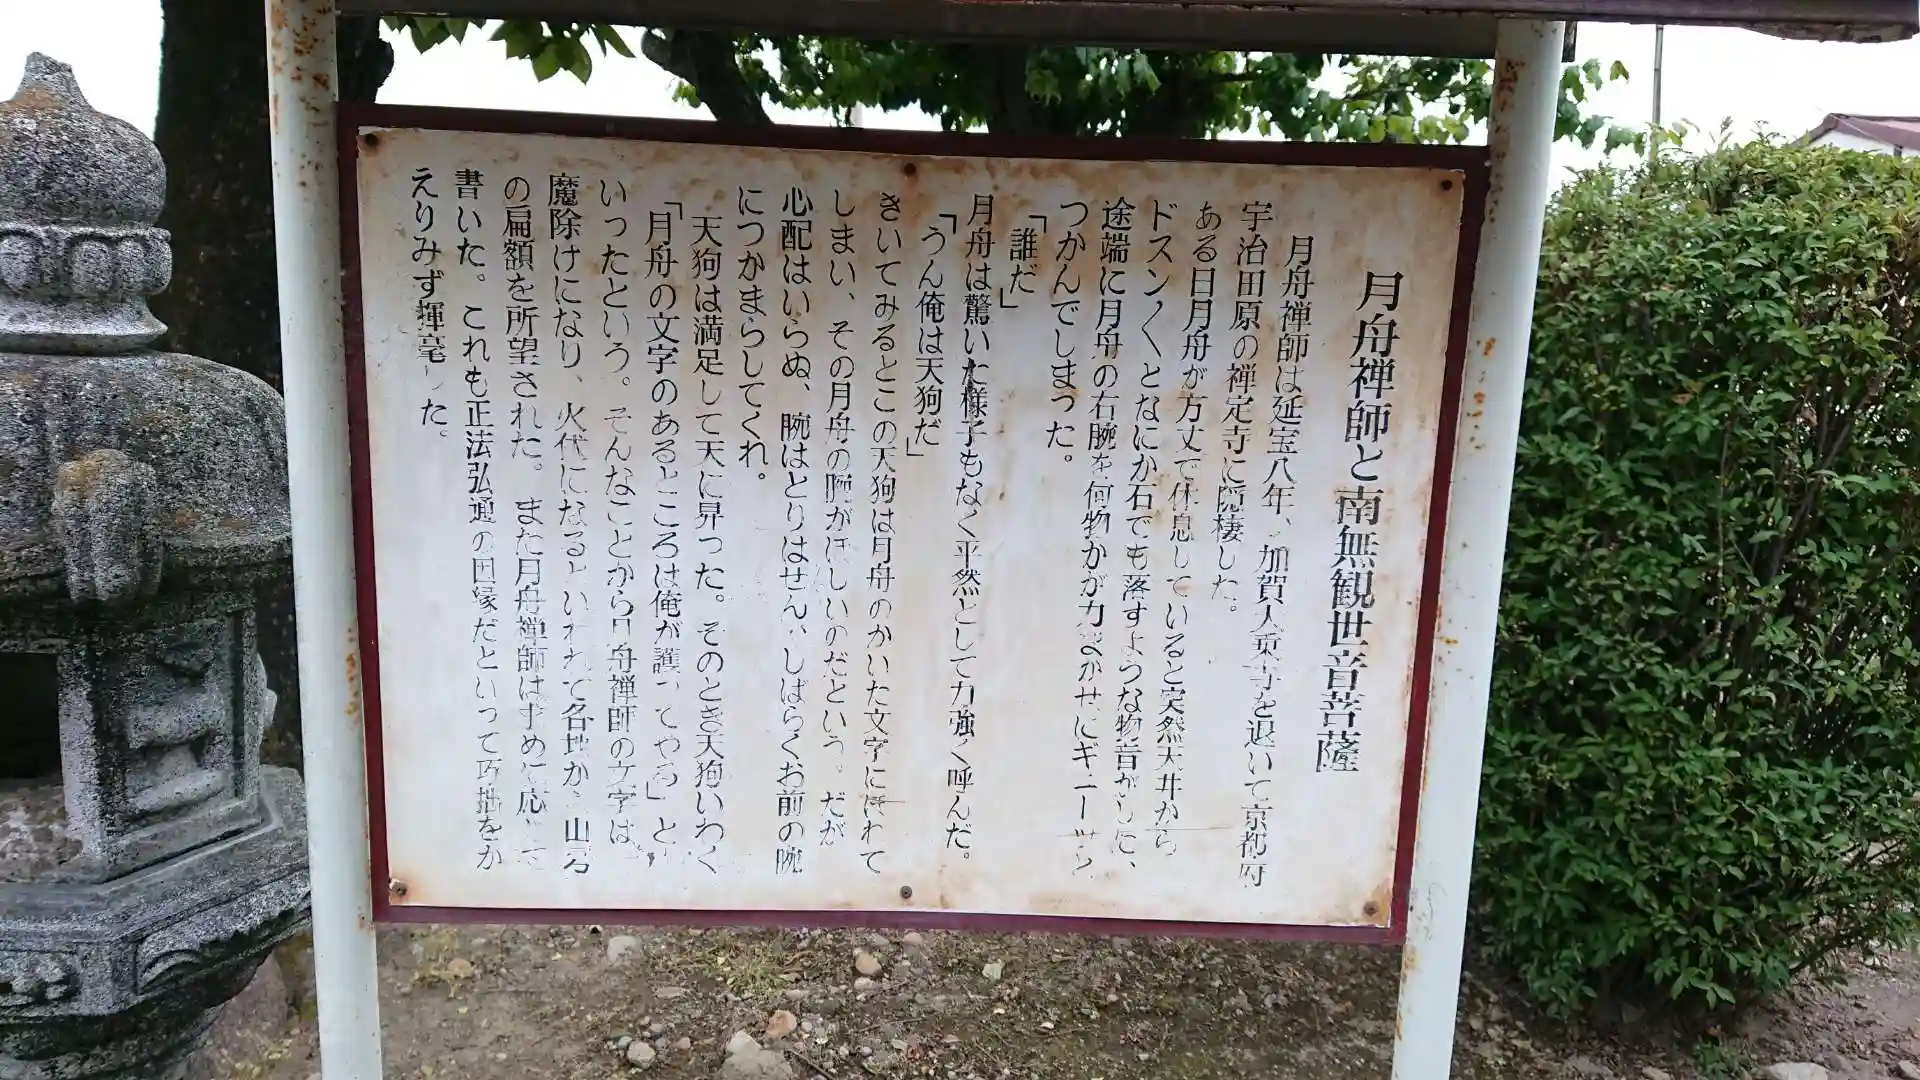 月舟禅師と南無観世音菩薩
月舟禅師は延宝八年、加賀大乗寺を退いて京都府
宇治田原の禅定寺に隠棲した。
ある日月舟が方丈で休息していると突然天井から
ドスン〱となにか石でも落すような物音がした、
途端に月舟の右腕を何物かが力まかせにギューッと
つかんでしまった。
「誰だ」
月舟は驚いた様子もなく平然として力強く呼んだ。
「うん俺は天狗だ」
きいてみるとこの天狗は月舟のかいた文字にほれて
しまい、その月舟の腕がほしいのだという。だが
心配はいらぬ、腕はとりはせん、しばらくお前の腕
につかまらしてくれ。
天狗は満足して天に昇った。そのとき天狗いわく
「月舟の文字のあるところは俺が護ってやる」と
いったという。そんなことから月舟禅師の文字は
魔除けになり、火伏になるといわれて各地から山号
の扁額を所望された。また月舟禅師は求めに応じて
書いた。これも正法弘通の因縁だといって巧拙をか
えりみず揮毫した。